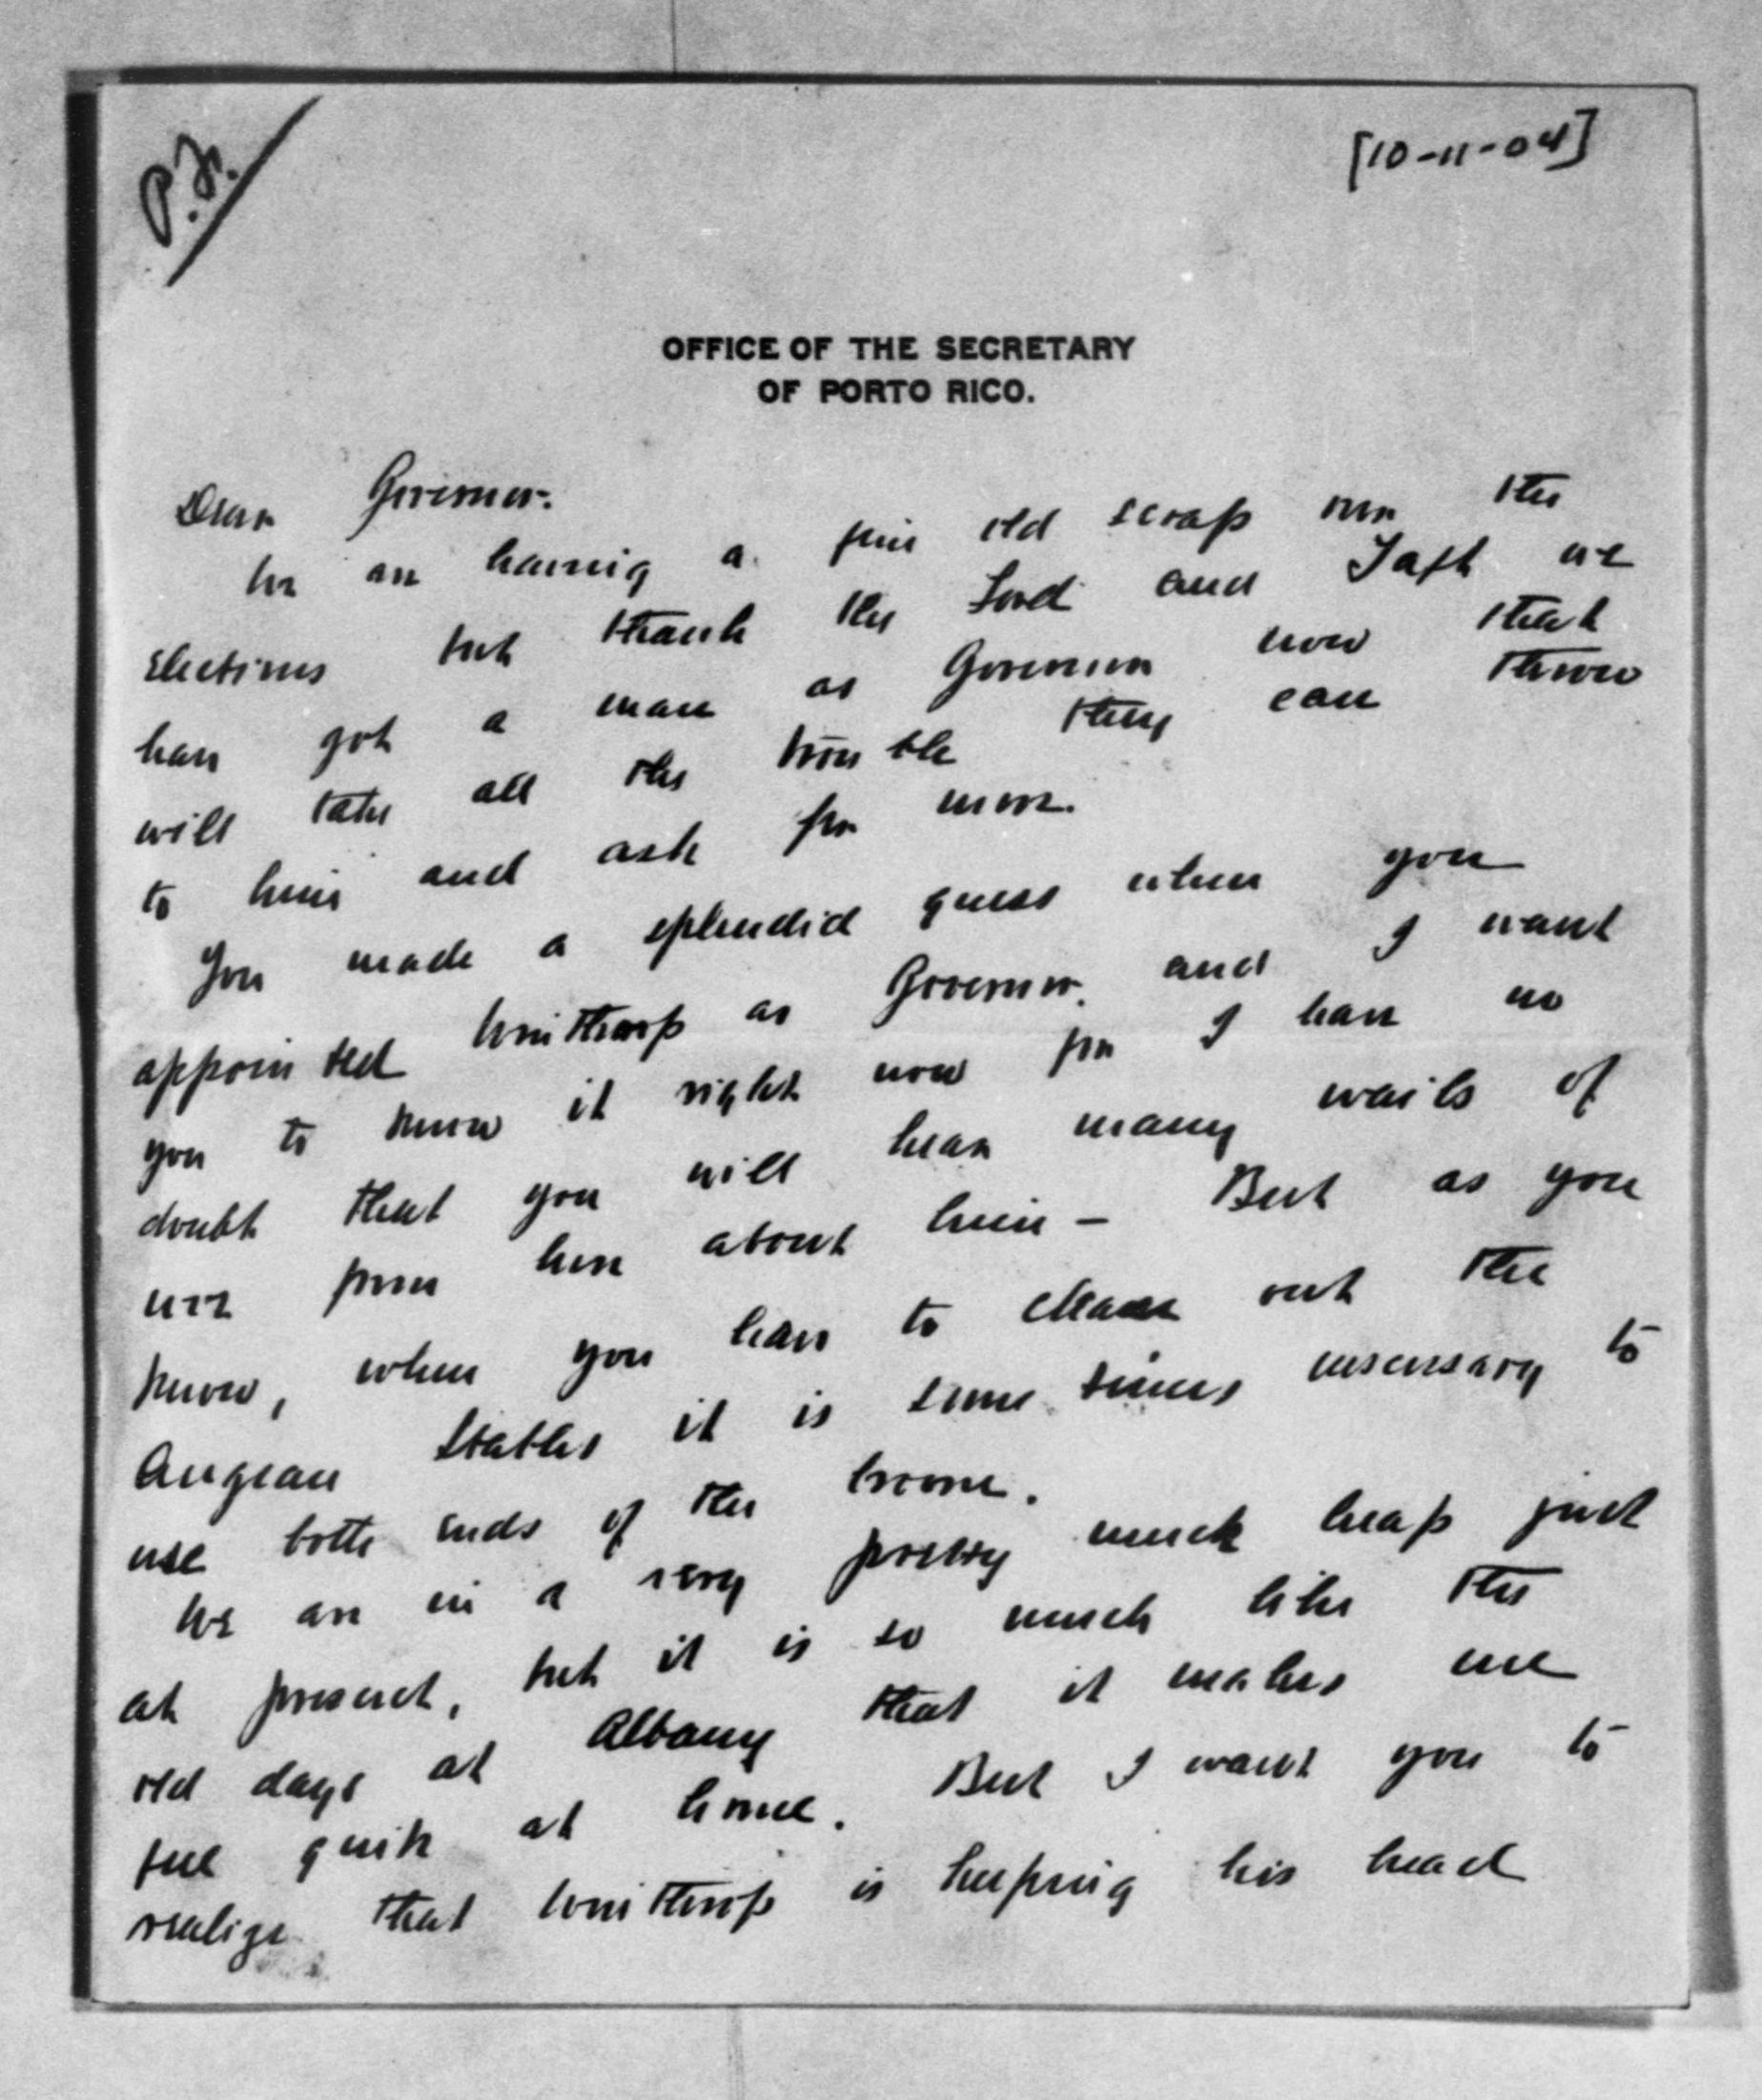 P.F.
[10-11-04]
OFFICE OF THE SECRETARY
OF PORTO RICO.
Dear Governor.
We are having a fine old scrap over the
elections but thank the Lord and Taft we
have got a man as Governor now that
will take all the trouble they can throw
to him and ask for more.
You made a splendid guess when you
appointed Winthrop as Governor. and I want
you to know it right now for I have no
doubt that you will hear many wails of
woe from here about him – But as you
know, when you have to clean out the
Augean Stables it is some times necessary to
use both ends of the broom.
We are in a very pretty much heap just
at present, but it is so much like the
old days at Albany that it makes me
feel quite at home. But I want you to
realize that Winthrop is keeping his head